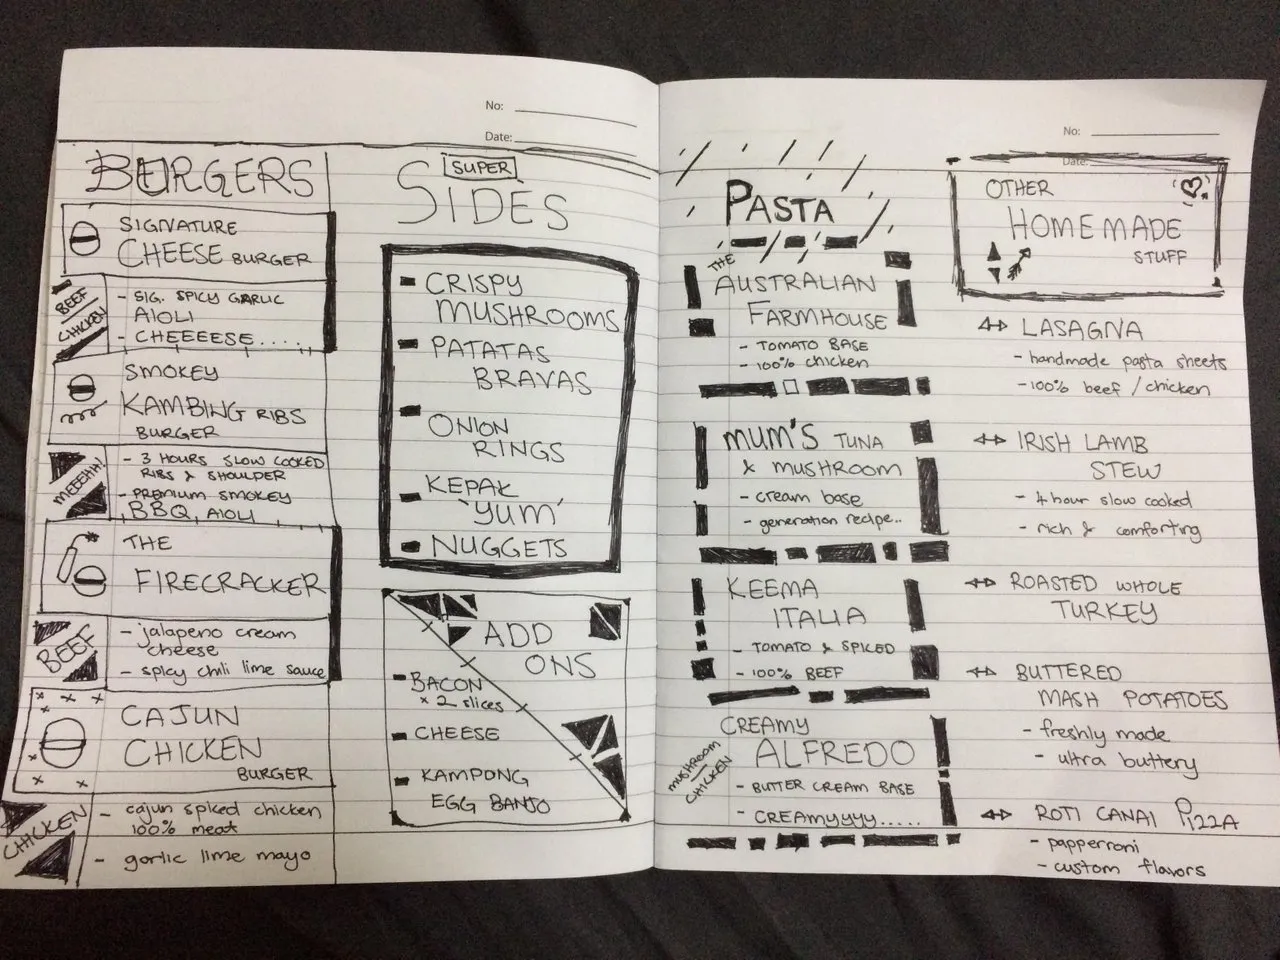 No:
Date:
BURGERS
SIGNATURE
CHEESE BURGER
BEEF
CHICKEN
- SIG. SPICY GARLIC
AIOLI
- CHEEEESE....
SMOKEY
KAMBING RIBS
BURGER
MEEEHH!
- 3 HOURS SLOW COOKED
RIBS & SHOULDER
- PREMIUM SMOKEY
BBQ AIOLI
THE
FIRECRACKER
BEEF
- jalapeno cream
cheese
- spicy chili lime sauce
CAJUN
CHICKEN
BURGER
CHICKEN
- cajun spiced chicken
100% meat
- garlic lime mayo
SUPER
SIDES
CRISPY
MUSHROOMS
PATATAS
BRAVAS
ONION
RINGS
KEPAK
'YUM'
NUGGETS
ADD
ONS
- BACON
x 2 slices
- CHEESE
- KAMPONG
EGG BANJO
No:
Date:
PASTA
THE
AUSTRALIAN
FARMHOUSE
- TOMATO BASE
- 100% chicken
mum's TUNA
& MUSHROOM
- cream base
- generation recipe..
KEEMA
ITALIA
- TOMATO & SPICED
- 100% BEEF
CREAMY
ALFREDO
MUSHROOM
CHICKEN
- BUTTER CREAM BASE
- CREAMYYYY.....
OTHER
HOMEMADE
STUFF
LASAGNA
- handmade pasta sheets
- 100% beef / chicken
IRISH LAMB
STEW
- 4 hour slow cooked
- rich & comforting
ROASTED WHOLE
TURKEY
BUTTERED
MASH POTATOES
- freshly made
- ultra buttery
ROTI CANAI PIZZA
- papperroni
- custom flavors